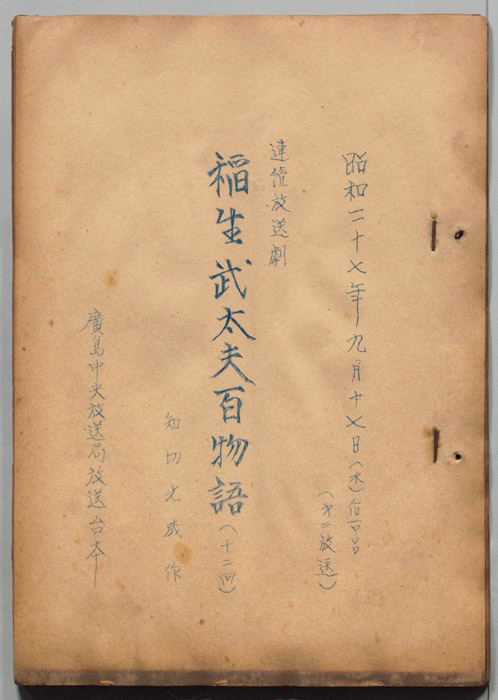 昭和二十七年九月十七日(水)
(第二放送)
連続放送劇
稲生武太夫百物語(十二回)
知切光歳作
廣島中央放送局放送台本